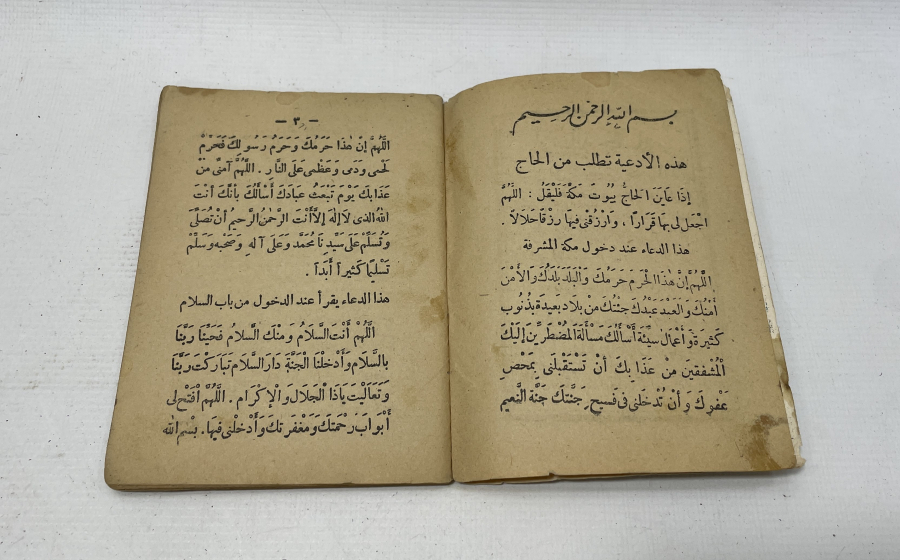 بسم الله الرحمن الرحيم
هذه الأدعية تطلب من الحاج
إِذَا عَايَنَ الحَاجُّ بُيُوتَ مَكَّةَ فَلْيَقُلْ : اللَّهُمَّ
اجْعَل لِى بِهَا قَرَارًا ، وَارْزُقْنِى فِيهَا رِزْقًا حَلَالاً .
هذا الدعاء عند دخول مكة المشرفة
اللَّهُمَّ إِنَّ هٰذَا الحَرَمَ حَرَمُكَ وَالبَلَدَ بَلَدُكَ وَالأَمْنَ
أَمْنُكَ وَالعَبْدَ عَبْدُكَ جِئْتُكَ مِنْ بِلَادٍ بَعِيدَةٍ بِذُنُوبٍ
كَثِيرَةٍ وَأَعْمَالٍ سَيِّئَةٍ أَسْأَلُكَ مَسْأَلَةَ المُضْطَرِّينَ إِلَيْكَ
الْمُشْفِقِينَ مِنْ عَذَابِكَ أَنْ تَسْتَقْبِلَنِى بِمَحْضِ
عَفْوِكَ وَأَنْ تُدْخِلَنِى فِى فَسِيحِ جَنَّتِكَ جَنَّةَ النَّعِيمِ
— ٣ —
اللَّهُمَّ إِنَّ هٰذَا حَرَمُكَ وَحَرَمُ رَسُولِكَ فَحَرِّمْ
لَحْمِى وَدَمِى وَعَظْمِى عَلَى النَّارِ . اللَّهُمَّ آمِنِّى مِنْ
عَذَابِكَ يَوْمَ تَبْعَثُ عِبَادَكَ أَسْأَلُكَ بِأَنَّكَ أَنْتَ
اللهُ الذِى لَا إِلٰهَ إِلَّا أَنْتَ الرَّحْمٰنُ الرَّحِيمُ أَنْ تُصَلِّىَ
وَتُسَلِّمَ عَلَى سَيِّدِنَا مُحَمَّدٍ وَعَلَى آلِهِ وَصَحْبِهِ وَسَلِّمْ
تَسْلِيمًا كَثِيرًا أَبَدًا .
هذا الدعاء يقرأ عند الدخول من باب السلام
اللَّهُمَّ أَنْتَ السَّلَامُ وَمِنْكَ السَّلَامُ فَحَيِّنَا رَبَّنَا
بِالسَّلَامِ وَأَدْخِلْنَا الْجَنَّةَ دَارَ السَّلَامِ تَبَارَكْتَ رَبَّنَا
وَتَعَالَيْتَ يَاذَا الْجَلَالِ وَالْإِكْرَامِ . اللَّهُمَّ افْتَحْ لِى
أَبْوَابَ رَحْمَتِكَ وَمَغْفِرَتِكَ وَأَدْخِلْنِى فِيهَا . بِسْمِ اللهِ